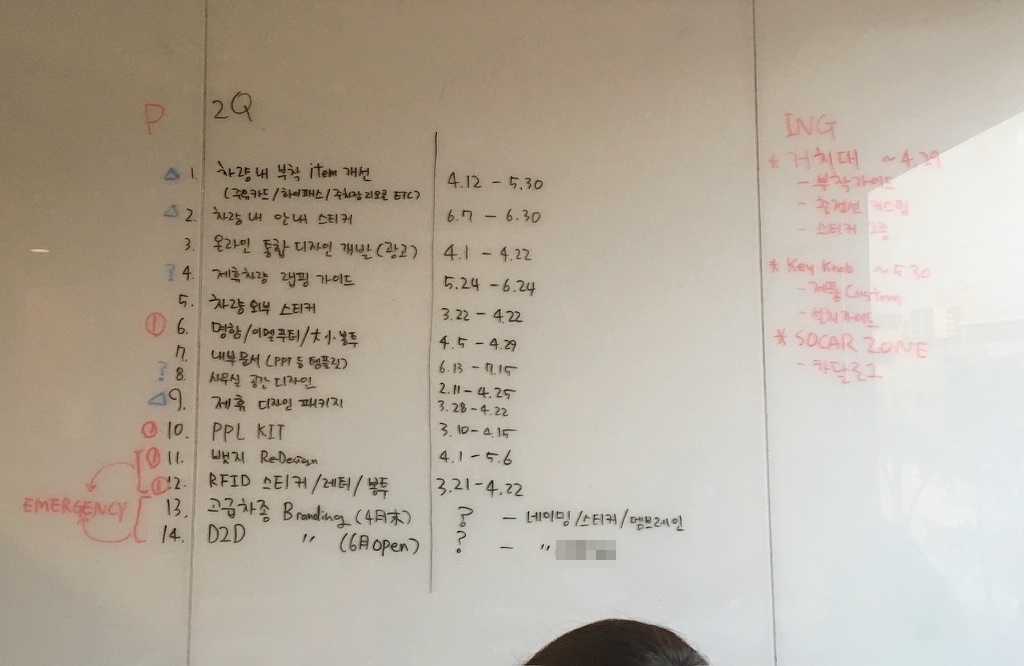 P 2Q
1. 차량 내 부착 item 개선 4.12 - 5.30
(주유카드/하이패스/주차장리모콘 ETC)
2. 차량 내 안내 스티커 6.7 - 6.30
3. 온라인 통합 디자인 개발 (광고) 4.1 - 4.22
? 4. 제휴차량 랩핑 가이드 5.24 - 6.24
5. 차량 외부 스티커 3.22 - 4.22
! 6. 명함/이멜푸터/大小봉투 4.5 - 4.29
7. 내부문서 (PPT 등 템플릿) 6.13 - 7.15
? 8. 사무실 공간 디자인 2.11 - 4.25
9. 제휴 디자인 패키지 3.28 - 4.22
! 10. PPL KIT 3.10 - 4.15
! 11. 뱃지 ReDesign 4.1 - 5.6
! 12. RFID 스티커/레터/봉투 3.21 - 4.22
EMERGENCY
13. 고급차종 Branding (4月末) ? - 네이밍/스티커/멤브레인
14. D2D 〃 (6月 open) ? - 〃
ING
* 거치대 ~4.29
- 부착가이드
- 충전선 커스텀
- 스티커 2종
* Key Knob ~5.30
- 제품 Custom
- 설치가이드
* SOCAR ZONE
- 카달로그